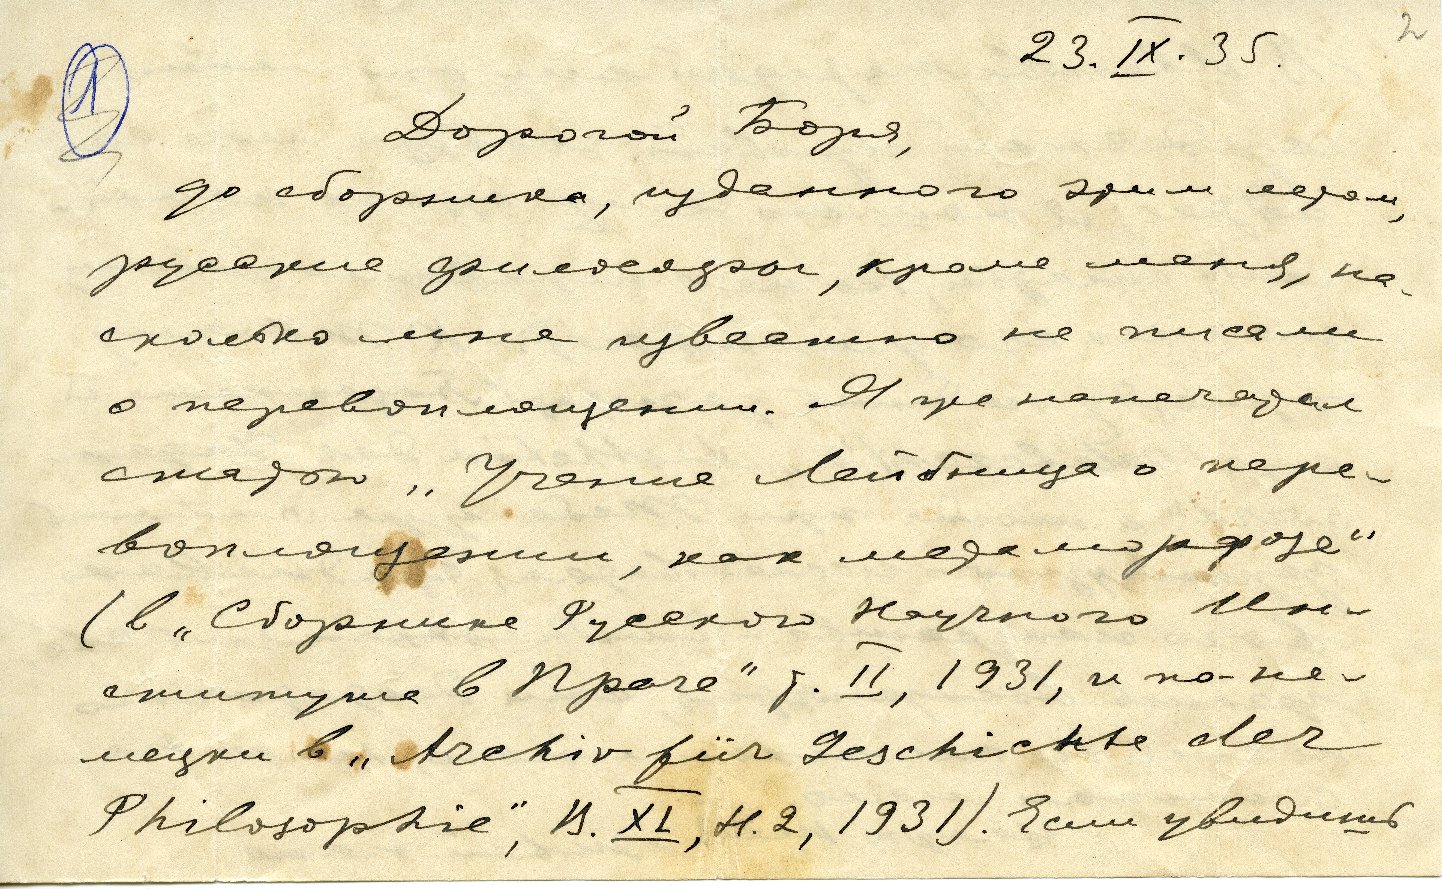 2
1
23.IX.35.
Дорогой Боря,
до сборника, изданного этим летом,
русские философы, кроме меня, на-
сколько мне известно не писали
о перевоплощении. Я же напечатал
статью „Учение Лейбница о пере-
воплощении, как метаморфозе“
(в „Сборнике Русского Научного Ин-
ститута в Праге“ т. II, 1931, и по-не-
мецки в „Archiv für Geschichte der
Philosophie“, B. XL, H. 2, 1931). Если увидишь